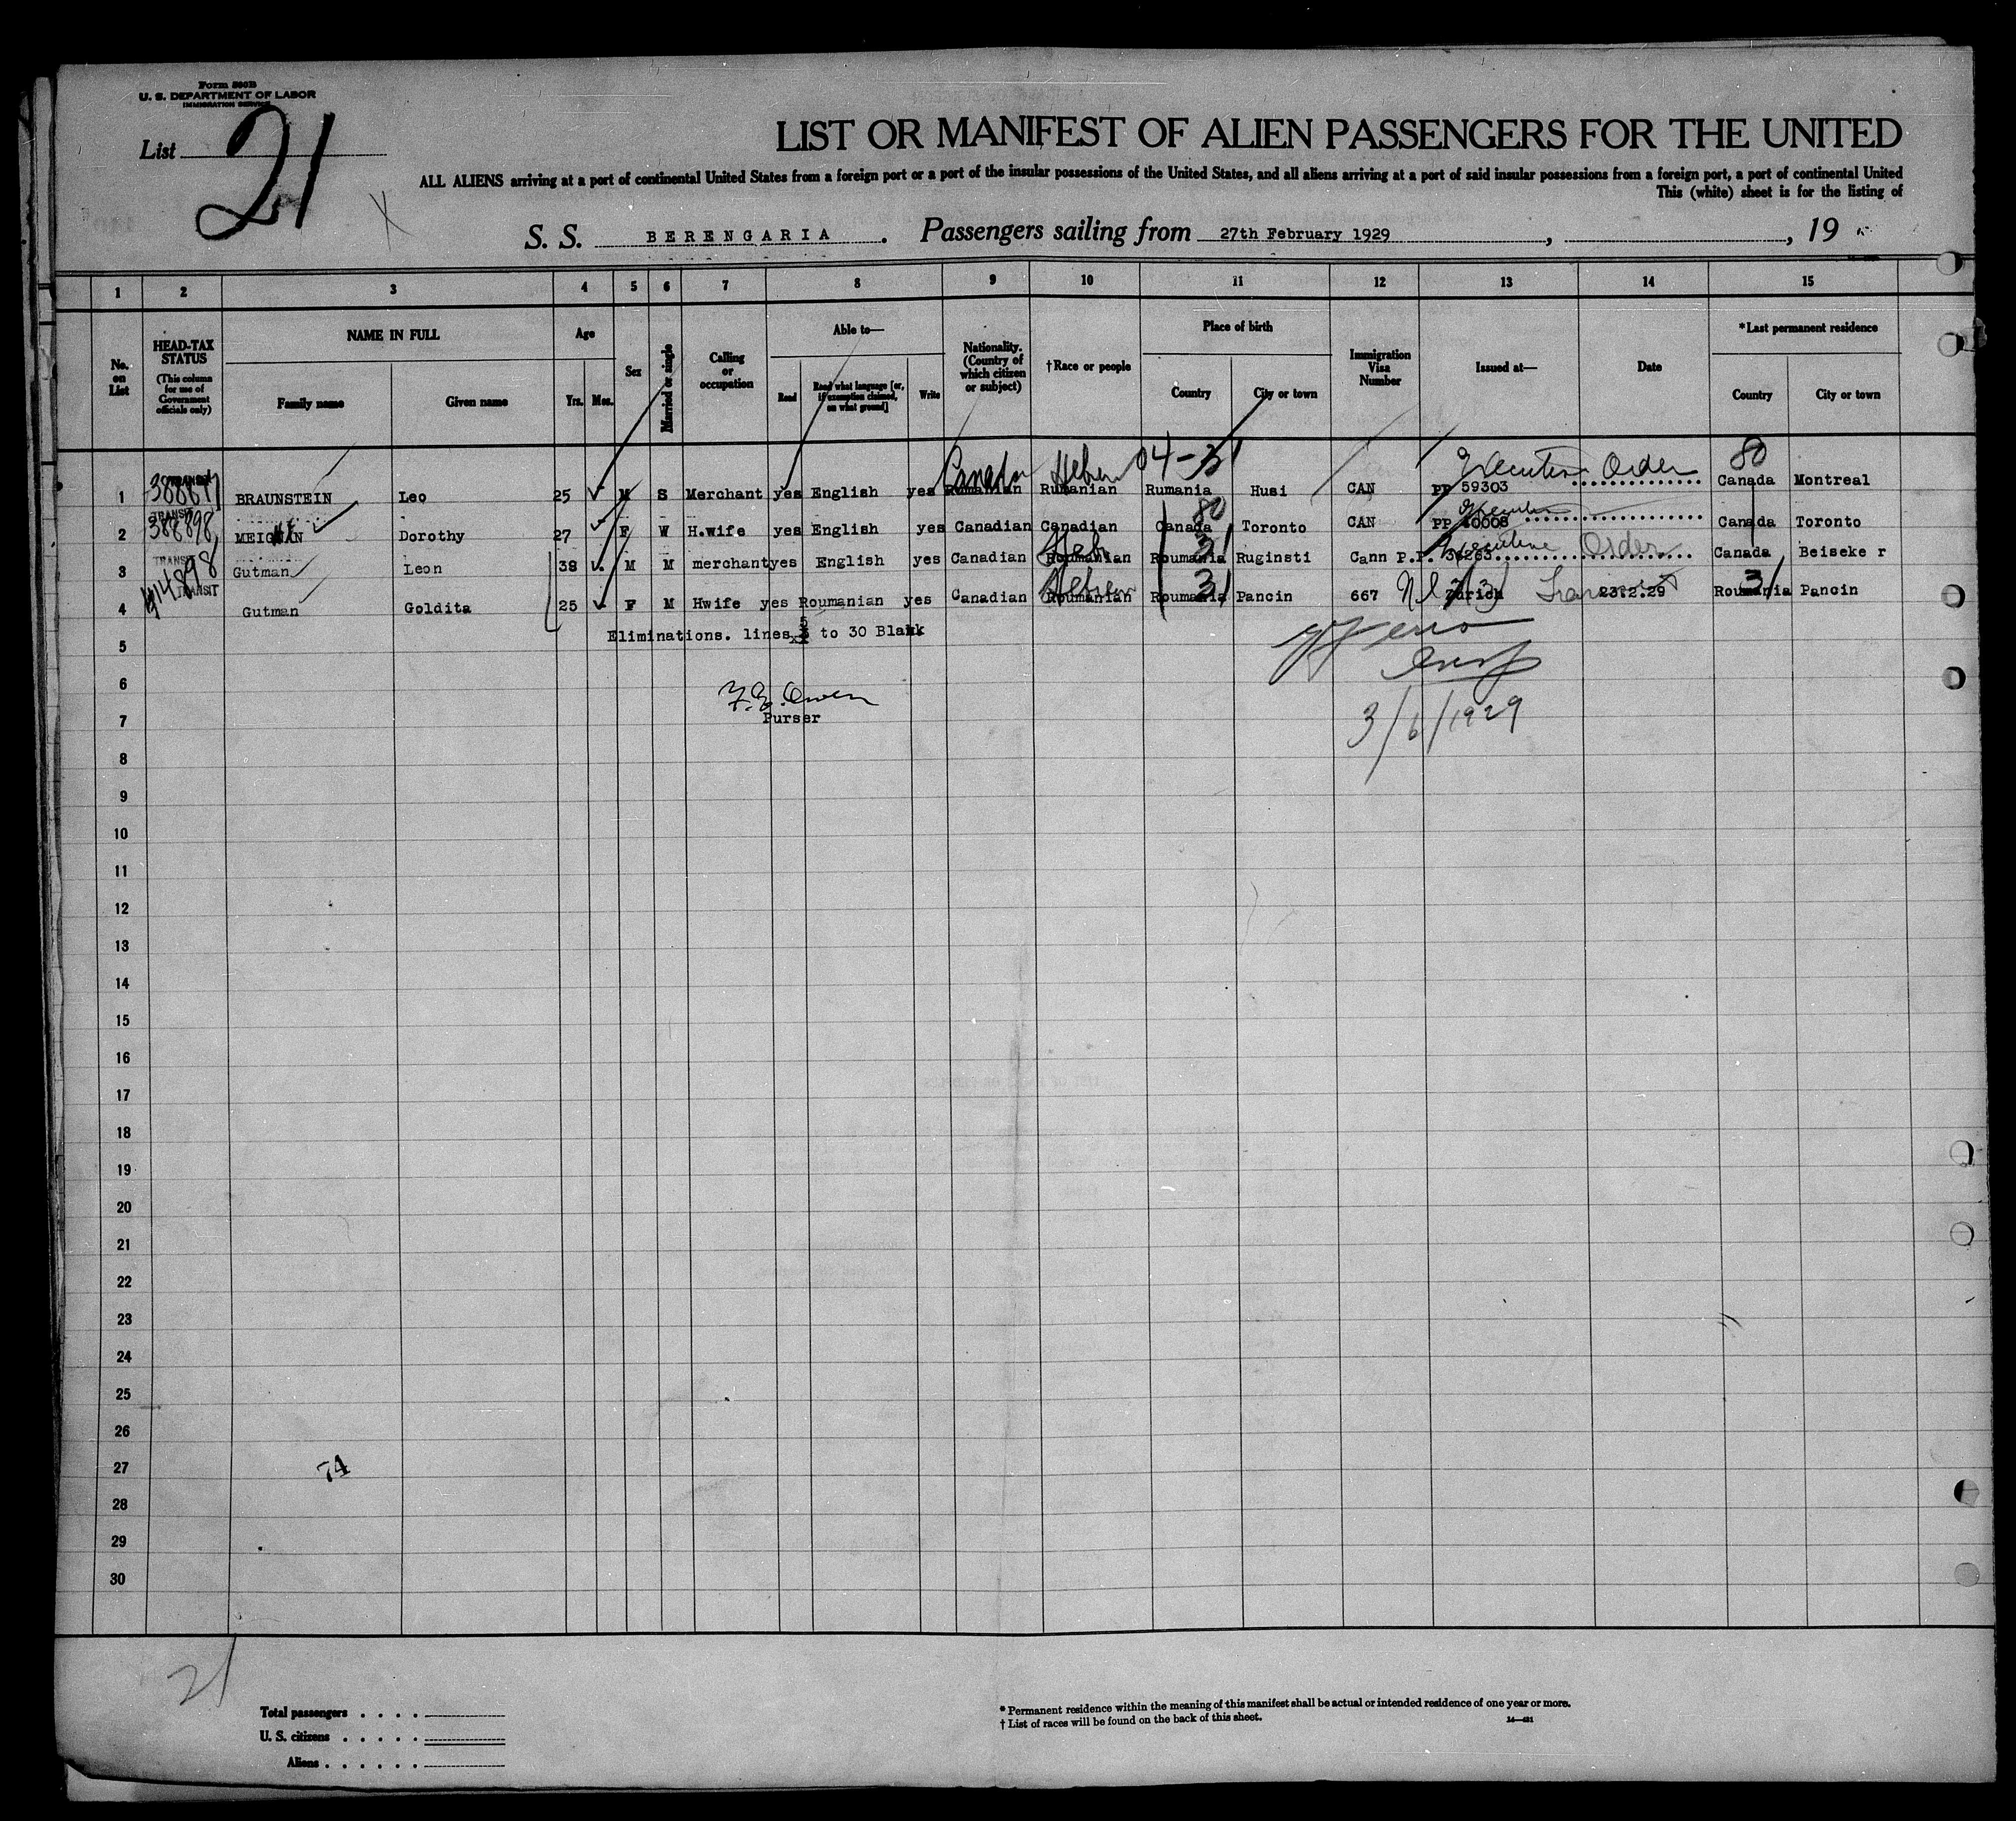 Form 500B
U. S. DEPARTMENT OF LABOR
IMMIGRATION SERVICE
List 21
LIST OR MANIFEST OF ALIEN PASSENGERS FOR THE UNITED
ALL ALIENS arriving at a port of continental United States from a foreign port or a port of the insular possessions of the United States, and all aliens arriving at a port of said insular possessions from a foreign port, a port of continental United
This (white) sheet is for the listing of
S. S. BERENGARIA. Passengers sailing from 27th February 1929, , 19
1 2 3 4 5 6 7 8 9 10 11 12 13 14 15
No. on List
HEAD-TAX STATUS
(This column for use of Government officials only)
NAME IN FULL
Family name Given name
Age
Yrs. Mos.
Sex
Married or single
Calling or occupation
Able to—
Read Read what language [or, if exemption claimed, on what ground] Write
Nationality. (Country of which citizen or subject)
†Race or people
Place of birth
Country City or town
Immigration Visa Number
Issued at—
Date
*Last permanent residence
Country City or town
Canada Hebrew 04-31 Executive Order 80
1 TRANSIT BRAUNSTEIN Leo 25 M S Merchant yes English yes Rumanian Rumanian Rumania Husi CAN PP 59303 Canada Montreal
80 Executive
2 TRANSIT 388898 MEIGHAN Dorothy 27 F W H.wife yes English yes Canadian Canadian Canada Toronto CAN PP Canada Toronto
Hebr 31 Executive Order
3 TRANSIT Gutman Leon 38 M M merchant yes English yes Canadian Roumanian Roumania Ruginsti Cann P.P. 36263 Canada Beiseker
Hebrew 31 31
4 TRANSIT 414898 Gutman Goldita 25 F M Hwife yes Roumanian yes Canadian Roumanian Roumania Pancin 667 Zurich 23.2.29 Roumania Pancin
5 Eliminations. lines 5 to 30 Blank
6 F.E. Owen
7 Purser 3/6/1929
8
9
10
11
12
13
14
15
16
17
18
19
20
21
22
23
24
25
26
27 74
28
29
30
21
Total passengers . . . .
U. S. citizens . . . . .
Aliens . . . . . .
* Permanent residence within the meaning of this manifest shall be actual or intended residence of one year or more.
† List of races will be found on the back of this sheet.